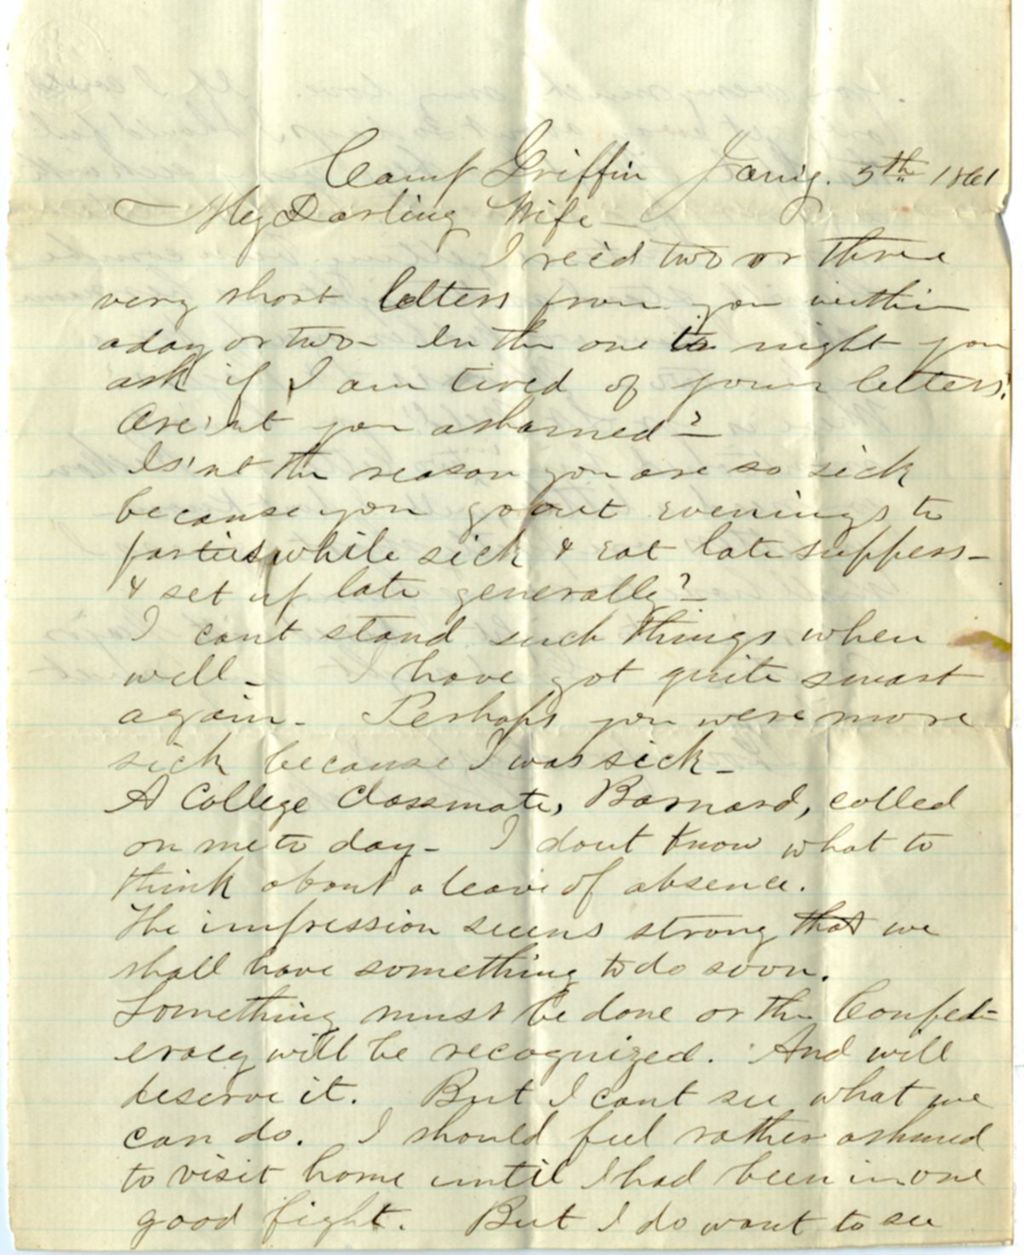 Camp Griffin Jany. 5th 1861
My Darling Wife
I rec'd two or three
very short letters from you within
a day or two. In the one to night you
ask if I am tired of your letters!
Are'nt you ashamed?
Is'nt the reason you are so sick
because you go out evenings to
parties while sick & eat late suppers-
& set up late generally?
I cant stand such things when
well. I have got quite smart
again. Perhaps you were more
sick because I was sick.
A College Classmate, Barnard, called
on me to day. I dont know what to
think about a leave of absence.
The impression seems strong that we
shall have something to do soon.
Something must be done or the Confed-
eracy will be recognized. And will
deserve it. But I cant see what we
can do. I should feel rather ashmed
to visit home until I had been in one
good fight. But I do want to see